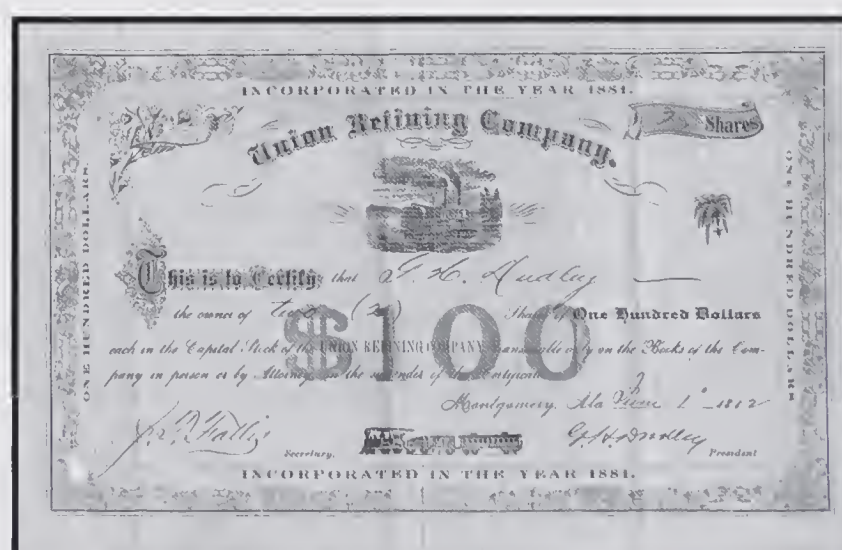 INCORPORATED IN THE YEAR 1881.
Union Refining Company.
2 Shares
ONE HUNDRED DOLLARS.
ONE HUNDRED DOLLARS.
This is to Certify that G. H. Dudley
the owner of two (2) Shares of One Hundred Dollars
$100
each in the Capital Stock of the UNION REFINING COMPANY transferable only on the Books of the Com-
pany in person or by Attorney on the surrender of this Certificate
Montgomery, Ala June 1 1882
Secretary. G. H. Dudley President
INCORPORATED IN THE YEAR 1881.